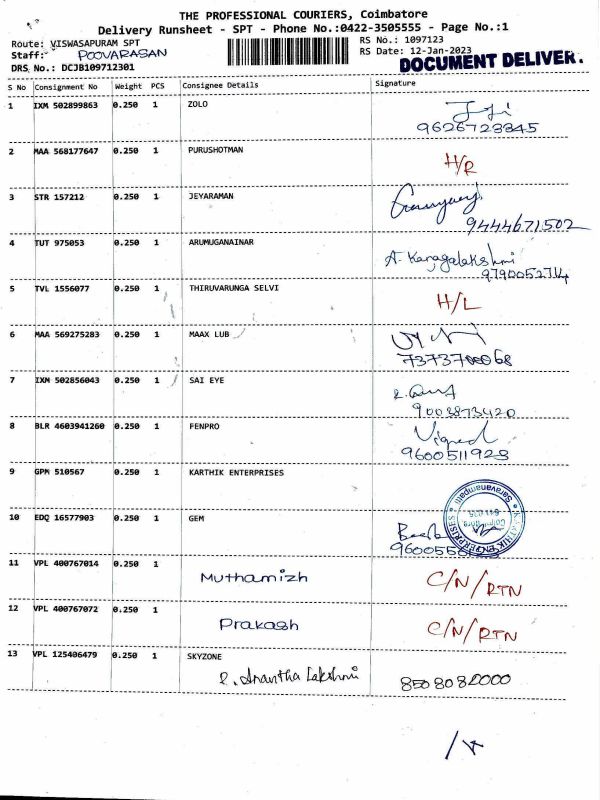 THE PROFESSIONAL COURIERS, Coimbatore
Delivery Runsheet - SPT - Phone No.:0422-3505555 - Page No.:1
Route: VISWASAPURAM SPT
RS No.: 1097123
Staff: POOVARASAN
RS Date: 12-Jan-2023
DRS No.: DCJB109712301
DOCUMENT DELIVER.
S No Consignment No Weight PCS Consignee Details Signature
1 IXM 502899863 0.250 1 ZOLO
9626723845
2 MAA 568177647 0.250 1 PURUSHOTMAN
H/R
3 STR 157212 0.250 1 JEYARAMAN
9444671502
4 TUT 975053 0.250 1 ARUMUGANAINAR
A. Karagalakshmi
9790052714
5 TVL 1556077 0.250 1 THIRUVARUNGA SELVI
H/L
6 MAA 569275283 0.250 1 MAAX LUB
7373700068
7 IXM 502856043 0.250 1 SAI EYE
9003873420
8 BLR 4603941260 0.250 1 FENPRO
9600511923
9 GPM 510567 0.250 1 KARTHIK ENTERPRISES
KARTHIK ENTERPRISES
Saravanampatti
10 EDQ 16577903 0.250 1 GEM
11 VPL 400767014 0.250 1
Muthamizh C/N/RTN
12 VPL 400767072 0.250 1
Prakash C/N/RTN
13 VPL 125406479 0.250 1 SKYZONE
R. Anantha Lakshmi 8508082000